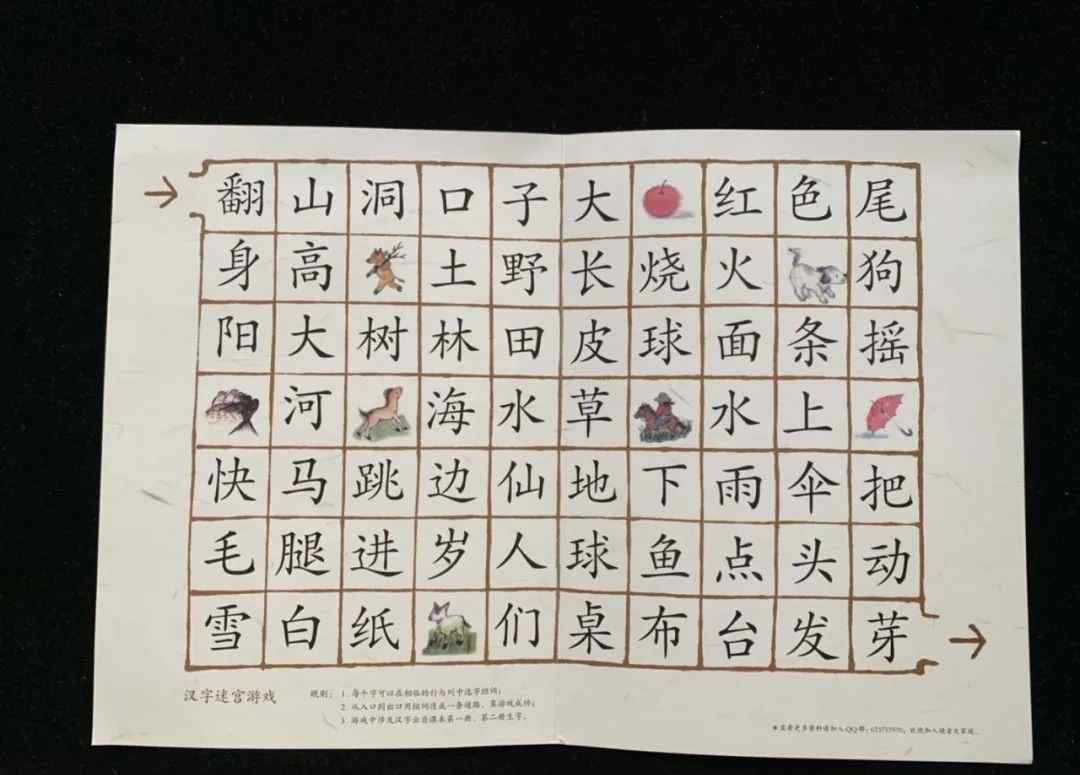 翻山洞口子大红色尾
身高土野长烧火狗
阳大树林田皮球面条摇
河海水草水上
快马跳边仙地下雨伞把
毛腿进岁人球鱼点头动
雪白纸们桌布台发芽
汉字迷宫游戏
规则：1. 每个字可以在相临的行与列中选字组词；
2. 从入口到出口用组词连成一条通路，算游戏成功；
3. 游戏中涉及汉字出自课本第一册、第二册生字。